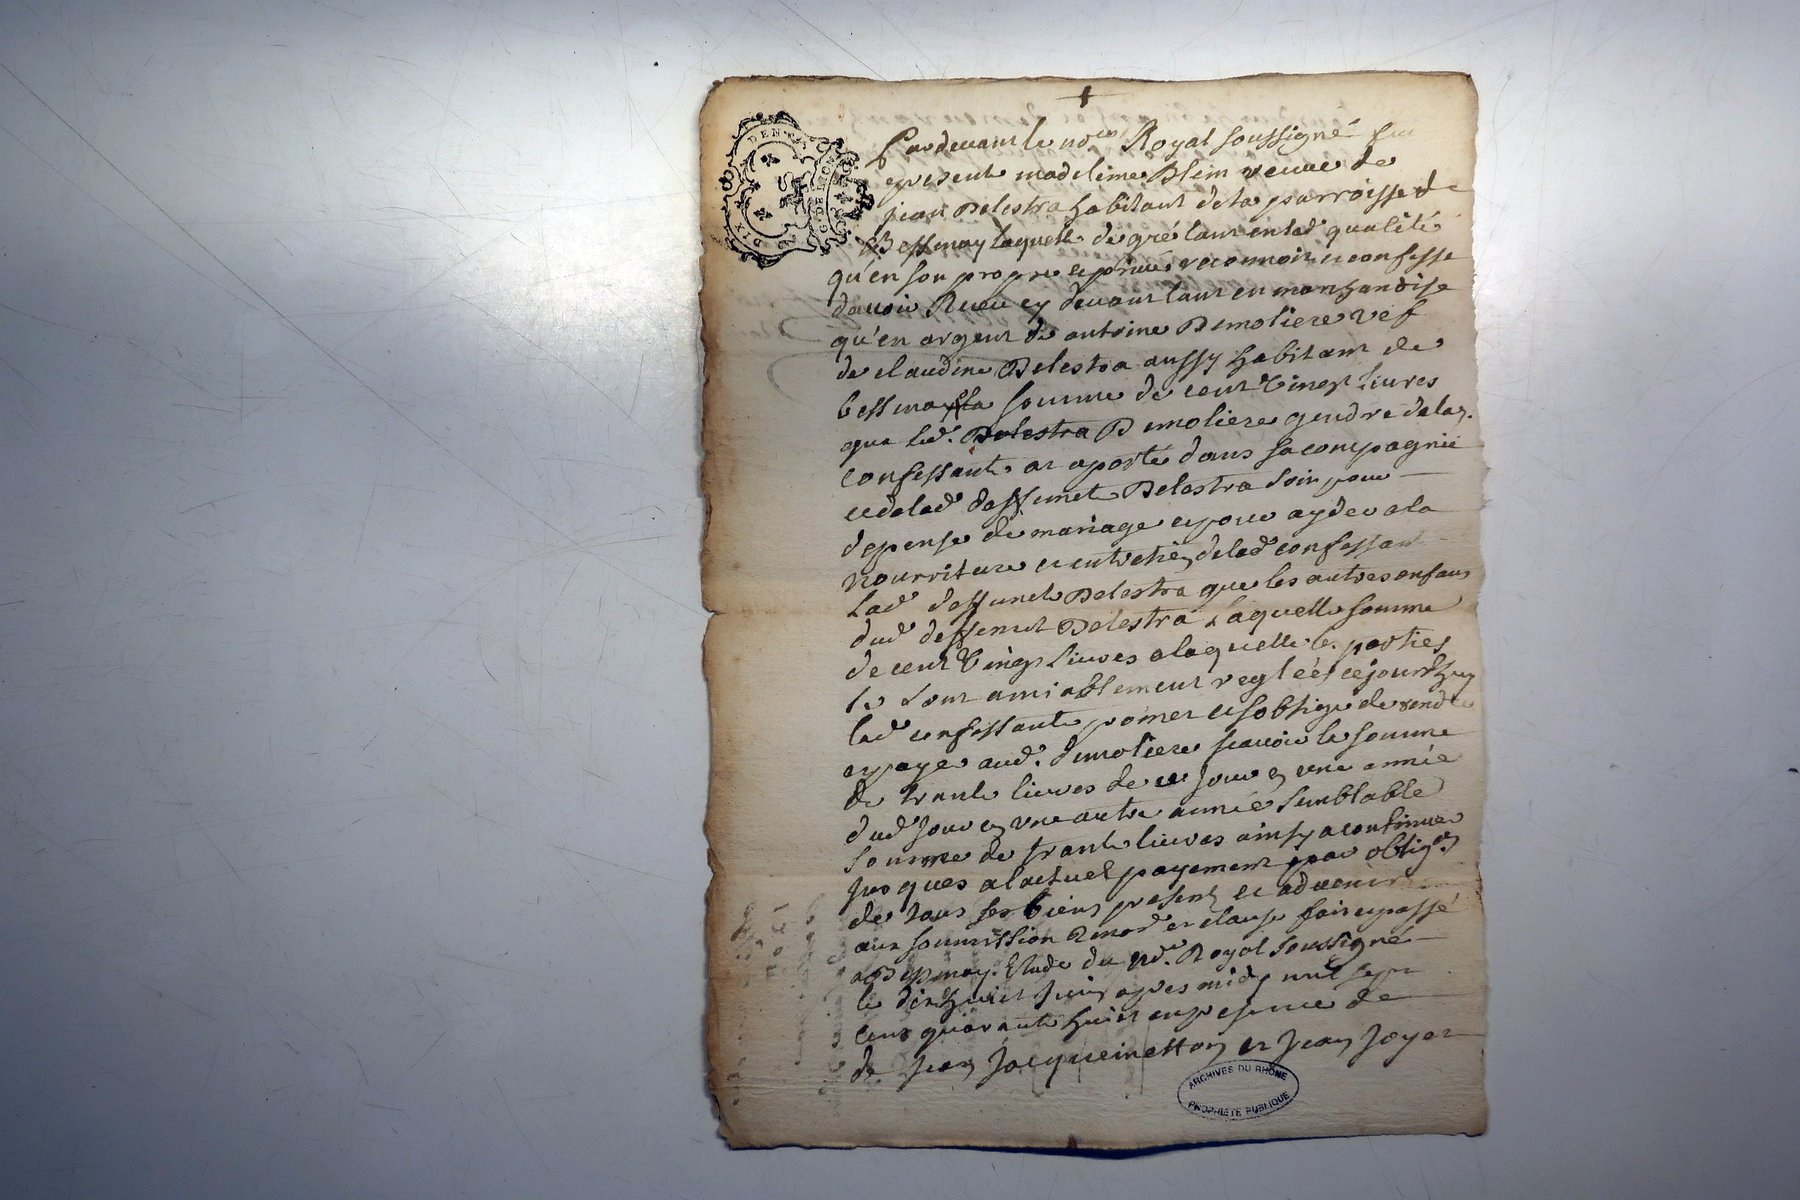 DIX DEN.
G. DE LYON
Pardevant le no.re Royal soussigné fut
presente madelime Blein veuve de
jean Delestra habitant de la parroisse de
Bessenay laquelle de gré tant en lad. qualité
qu'en son propre et privé reconnoit et confesse
davoir Receu cy devant tant en marchandise
qu'en argent de antoine Demoliere vef
de claudine Delestra aussy habitant de
bessenay la somme de cent vingt livres
que led. Delestra Demoliere gendre de la
confessante at aporté dans sa compagnie
et de lad. deffunct Delestra soit pour
depense de mariage et pour ayder a la
nourriture et entretien de lad. confessant
Lad. deffuncte Delestra que les autres enfans
dud. deffunct Delestra Laquelle somme
de cent vingt livres a laquelle les parties
se sont amiablement reglées cejourdhuy
lad. confessante promet et soblige de rendre
et payer aud. Dmoliere scavoir la somme
de trante livres de ce jour en une année
dud. jour en une autre année semblable
somme de trante livres ainsy a continuer
jusques a lactuel payement par oblig.on
de tous ses biens presents et advenir
aux soumission Renon.on et clause fait et passé
a Bessenay Etude du no.re Royal soussigné
le dix huit juin apres midy mil sept
cent quarante huit en presence de
de jean jacquemetton et jean joyet
ARCHIVES DU RHÔNE
PROPRIÉTÉ PUBLIQUE